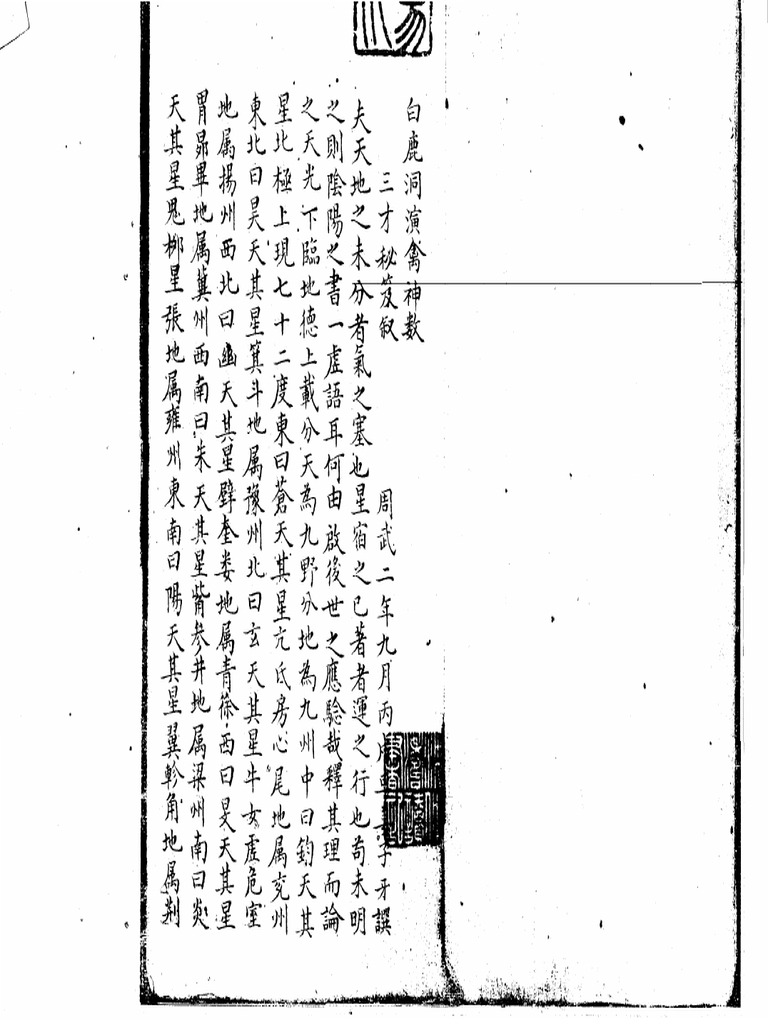 白鹿洞演禽神数
三才秘笈叙
周武二年九月丙 子牙譔
夫天地之未分者氣之塞也星宿之已著者運之行也苟未明
之則陰陽之書一虛語耳何由啟後世之應驗哉釋其理而論
之天光下臨地德上載分天為九野分地為九州中曰鈞天其
星北極上現七十二度東曰蒼天其星亢氐房心尾地属兖州
東北曰昊天其星箕斗地属豫州北曰玄天其星牛女虛危室
地属揚州西北曰幽天其星壁奎娄地属青徐西曰旻天其星
胃昴畢地属冀州西南曰朱天其星觜参井地属梁州南曰炎
天其星鬼柳星張地属雍州東南曰陽天其星翼軫角地属荆